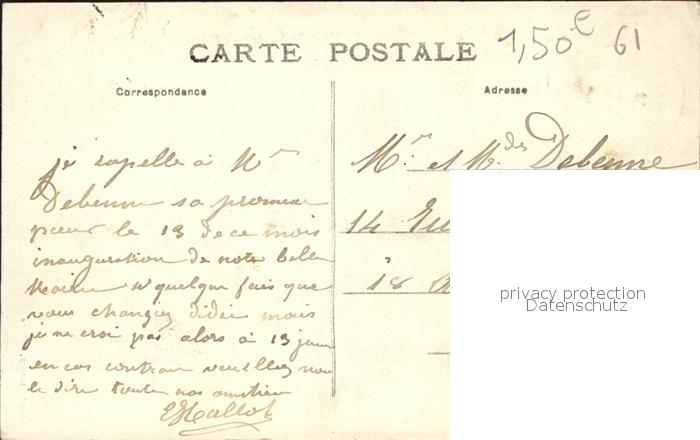 CARTE POSTALE
1,50€ 61
Correspondance
Adresse
je rapelle à Mr
Debenne sa promesse
pour le 13 de ce mois
inauguration de notre belle
si quelque fois que
vous changiez didée mais
je ne croi pas alors à 13 jours
en cas contraire veuillez nous
le dire toutes nos amitiés
EHallot
Mr. et M.des Debenne
14
18
privacy protection
Datenschutz